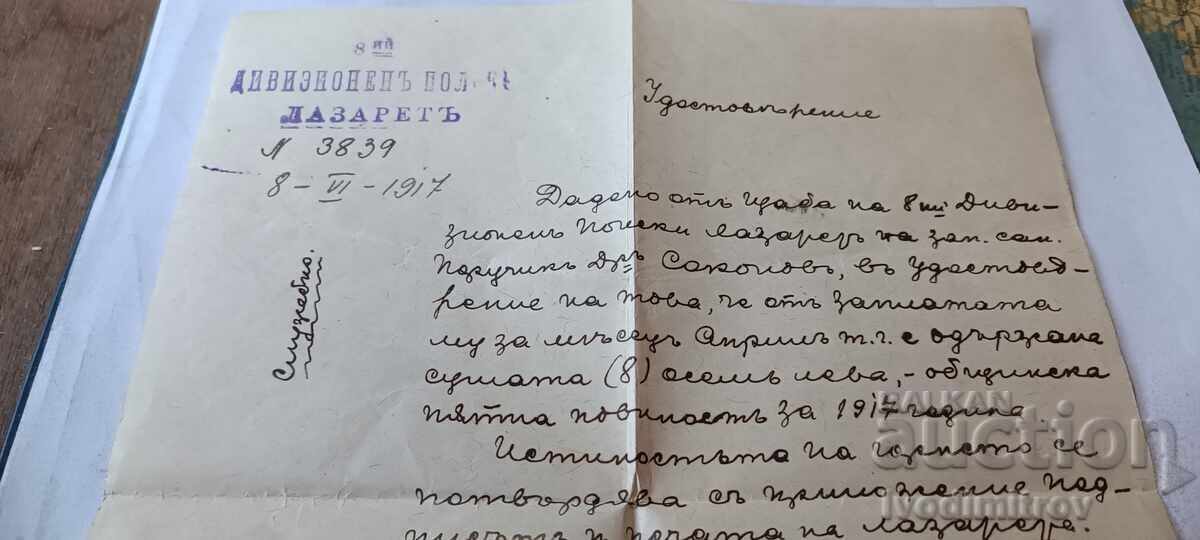 8 ий
ДИВИЗИОНЕНЪ ПОЛ
ЛАЗАРЕТЪ
N 3839
8 - VI - 1917
Служебно.
Удостовѣрение
Дадено отъ Щаба на 8ий Диви-
зионенъ Полски Лазаретъ на зап. сан.
Поручикъ Д-ръ Соколовъ, въ удостовѣ-
рение на това, че отъ заплатата
му за мѣсецъ Априлъ т.г. е одържана
сумата (8) осемь лева, - общинска
пѫтна повиность за 1917 година.
Истиностьта на горнето се
потвърдява съ приложение под-
писътъ и печата на лазарета.
BALKAN
auction
ivodimitrov